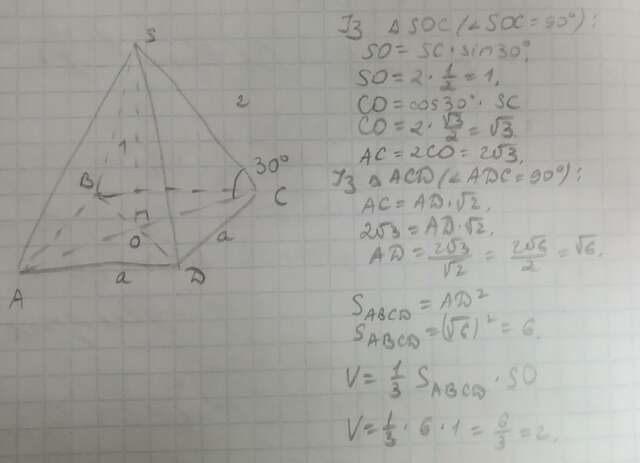 S
2
1
30°
B
C
П
O
a
A
a
D
Із ΔSOC (∠SOC = 90°):
SO = SC · sin30°,
SO = 2 · 1/2 = 1,
CO = cos30° · SC
CO = 2 · √3/2 = √3.
AC = 2CO = 2√3.
Із ΔACD (∠ADC = 90°):
AC = AD · √2,
2√3 = AD · √2,
AD = 2√3/√2 = 2√6/2 = √6.
S_ABCD = AD²
S_ABCD = (√6)² = 6.
V = 1/3 S_ABCD · SO
V = 1/3 · 6 · 1 = 6/3 = 2.